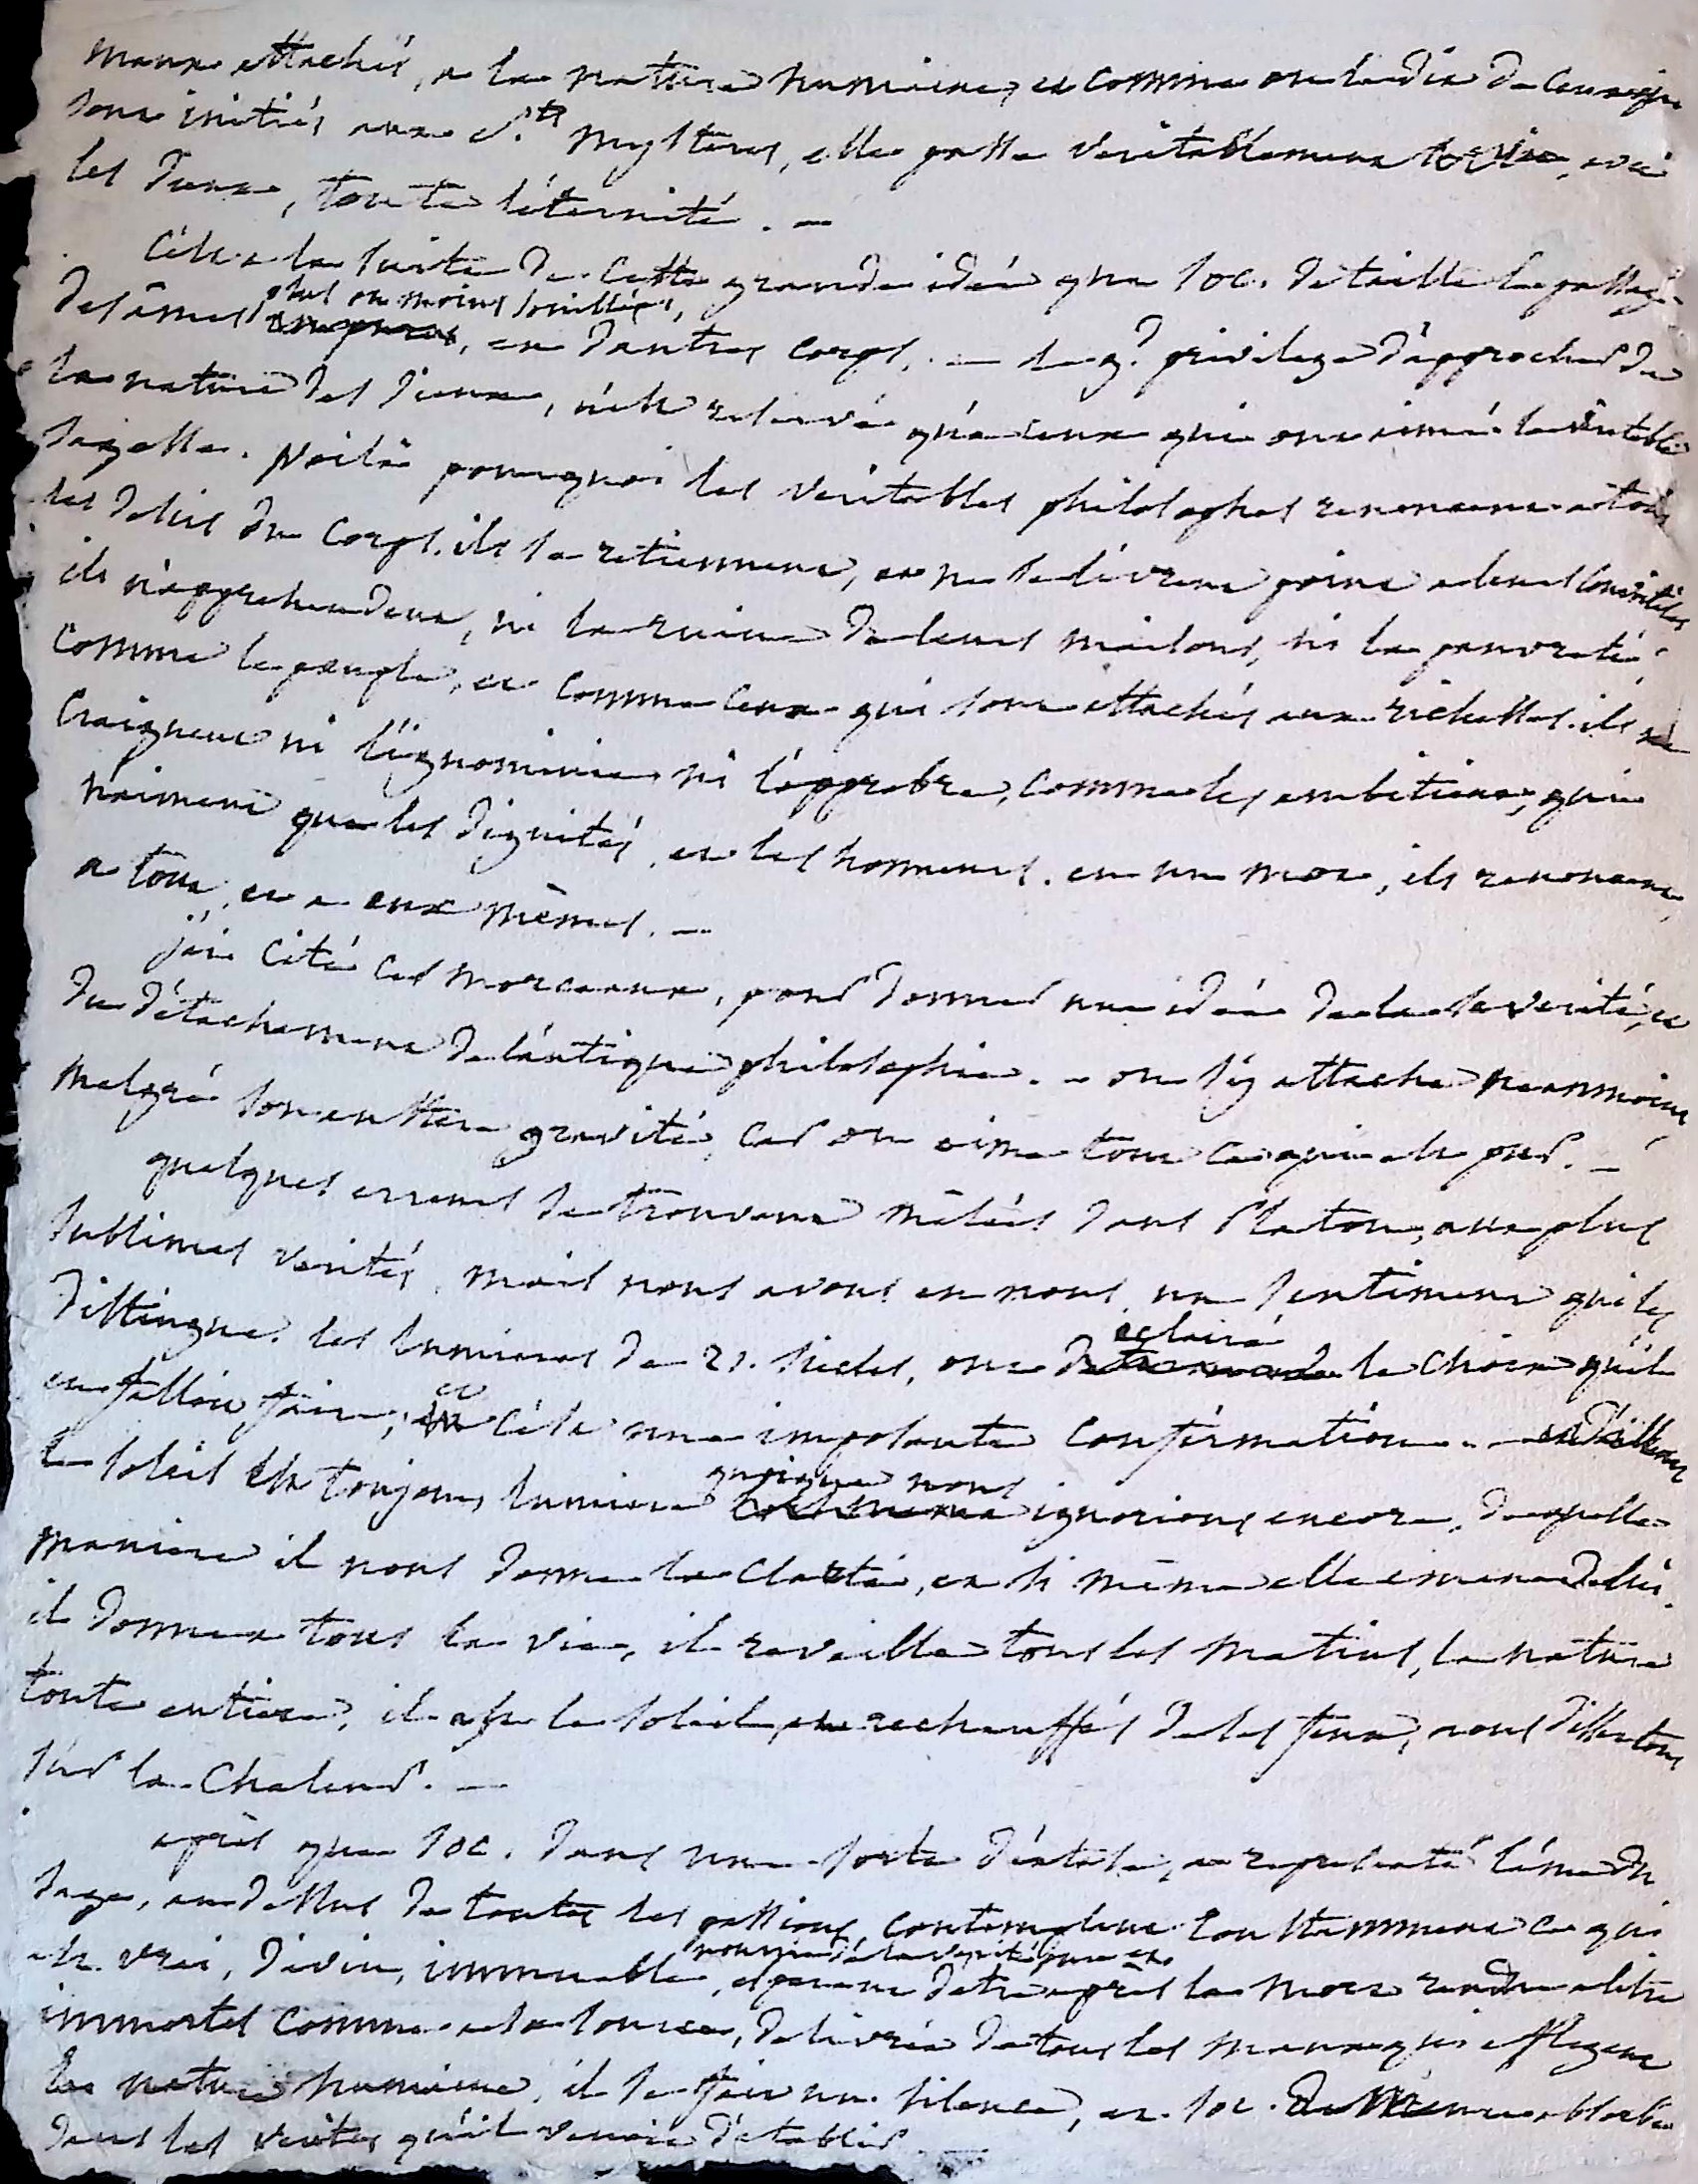 maux attachés, a la nature humaine, et comme on le dit de ceux qui
sont initiés aux s.ts mysteres, elle passe veritablement avec
les Dieux, toute l'éternité. –
C'est a la suite de cette grande idée que Soc. detaille le passage
des âmes plus ou moins souillées, en d'autres corps. – le gd. privilege d'approcher de
la nature des Dieux, n'est reservé qu'a ceux qui ont aimé la veritable
sagesse. Voilà pourquoi les veritables philosophes renoncent a tous
les desirs du corps. ils se retiennent, et ne se livrent point a leurs convoitises
ils n'apprehendent, ni la ruine de leurs maisons, ni la pauvreté,
comme le peuple, et comme ceux qui sont attachés aux richesses. ils ne
craignent ni l'ignominie ni l'opprobre, comme les ambitieux, qui
n'aiment que les dignités, et les honneurs. en un mot, ils renoncent
a tout, et a eux mêmes. –
j'ai cité ces morceaux, pour donner une idée de la severité, et
du détachement de l'antique philosophie. – on s'y attache neanmoins
malgré son austere gravité, car on aime tout ce qui est pur. –
quelques erreurs se trouvent mêlées dans Platon, aux plus
sublimes verités. mais nous avons en nous, un sentiment qui les
distingue. les lumieres de 21. siecles, ont eclairé le choix qu'il
en falloit faire, et c'est une imposante confirmation. – d'ailleurs
le soleil est toujours lumiere quoique nous ignorions encore, de quelle
maniere il nous donne la clarté, et si même elle emane de lui.
il donne a tous la vie, il reveille tous les matins, la nature
toute entiere, il est le soleil, et rechauffés de ses feux, nous dissertons
sur la chaleur. –
après que Soc. dans une sorte d'extase, a representé l'âme du
sage, au dessus de toutes les passions, contemplant constamment ce qui
est vrai, divin, immuable, nourrie de la verité pure et esperant d'etre après la mort rendue a l'etre
immortel comme a sa source, delivrée de tous les maux qui affligent
la nature humaine, il se fait un silence, et Soc. absorbé
dans les verités qu'il venoit d'établir